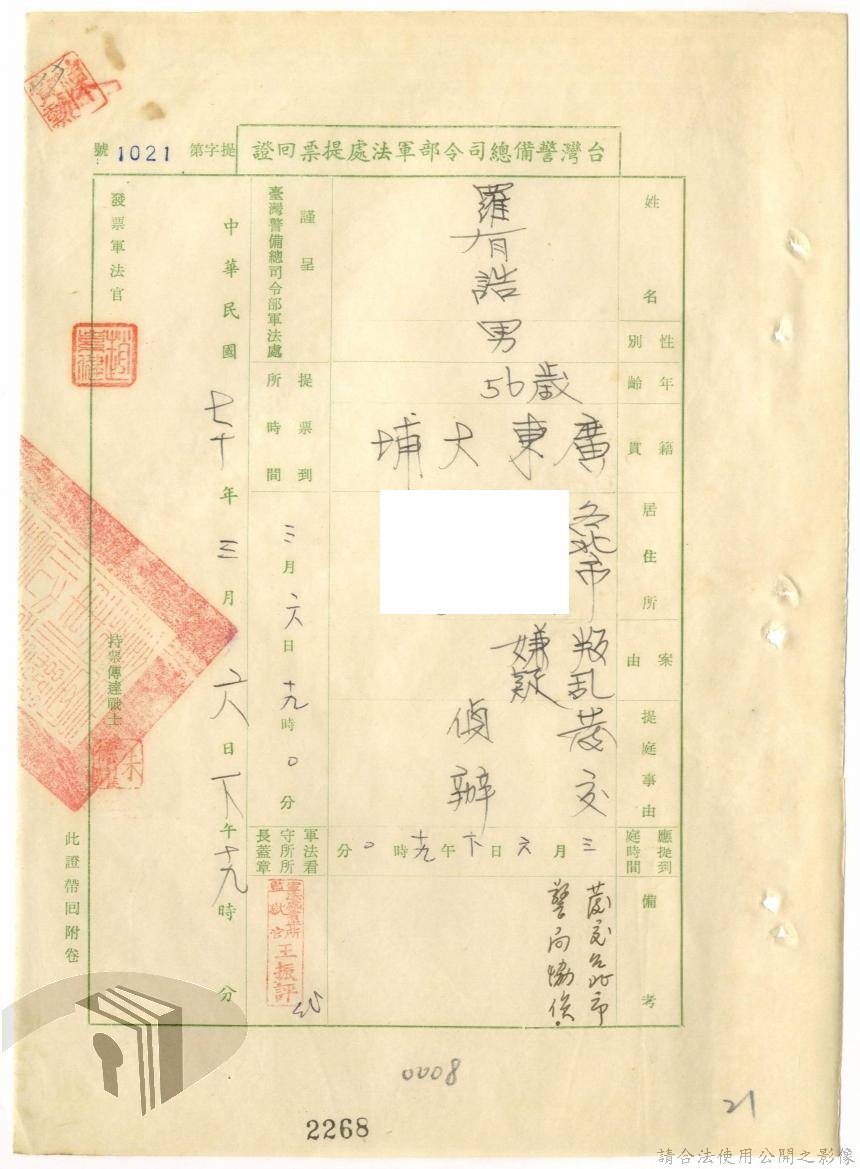 台灣警備總司令部軍法處提票回證
提字第1021號
姓名
羅有誥
性別
男
年齡
56歲
籍貫
廣東大埔
居住所
台北市
案由
叛乱嫌疑
提庭事由
發交偵辦
應提到庭時間
三月六日下午十九時0分
備考
發交台北市
警局協偵.
謹呈
臺灣警備總司令部軍法處
提票到所時間
三月六日十九時0分
軍法看守所所長蓋章
軍法看守所
監獄官王振評
中華民國七十年三月六日下午十九時分
發票軍法官
持票傳達戰士
此證帶回附卷
0008
2268
21
請合法使用公開之影像